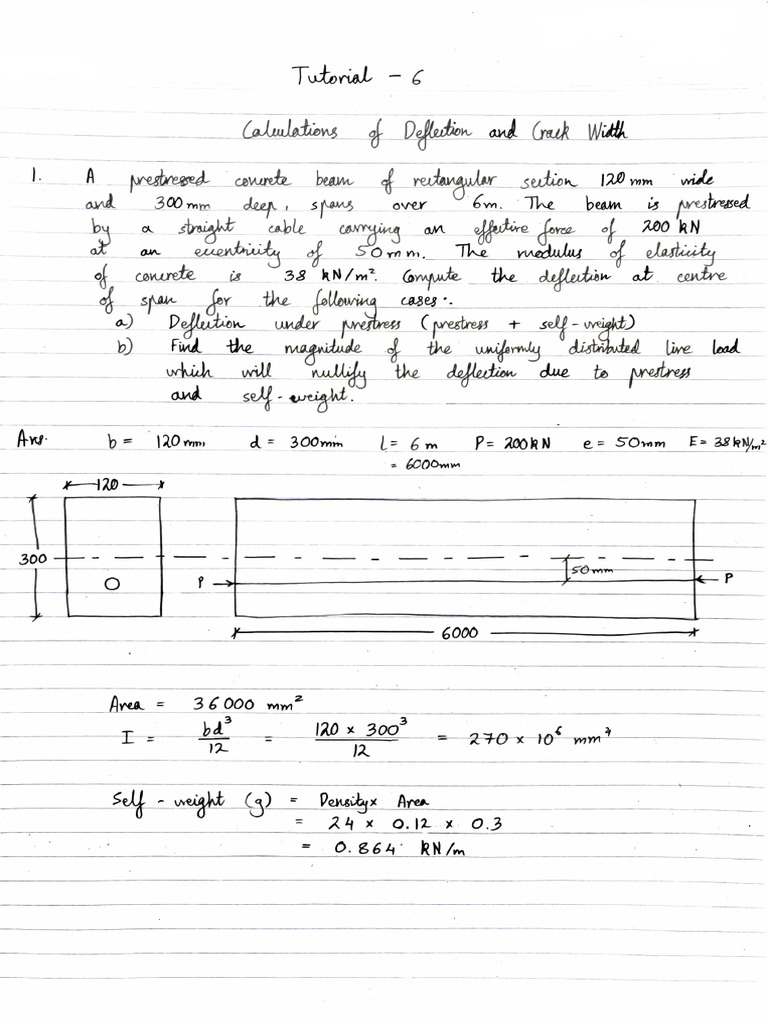 Tutorial - 6
Calculations of Deflection and Crack Width
1. A prestressed concrete beam of rectangular section 120 mm wide
and 300 mm deep, spans over 6m. The beam is prestressed
by a straight cable carrying an effective force of 200 kN
at an eccentricity of 50mm. The modulus of elasticity
of concrete is 38 kN/m². Compute the deflection at centre
of span for the following cases:.
a) Deflection under prestress (prestress + self-weight)
b) Find the magnitude of the uniformly distributed live load
which will nullify the deflection due to prestress
and self-weight.
Ans. b = 120 mm, d = 300mm l = 6 m P = 200kN e = 50mm E = 38kN/m²
= 6000mm
120
300
P
50mm
P
6000
Area = 36000 mm²
I = bd³/12 = 120 × 300³/12 = 270 × 10⁶ mm⁴
Self - weight (g) = Density× Area
= 24 × 0.12 × 0.3
= 0.864 kN/m